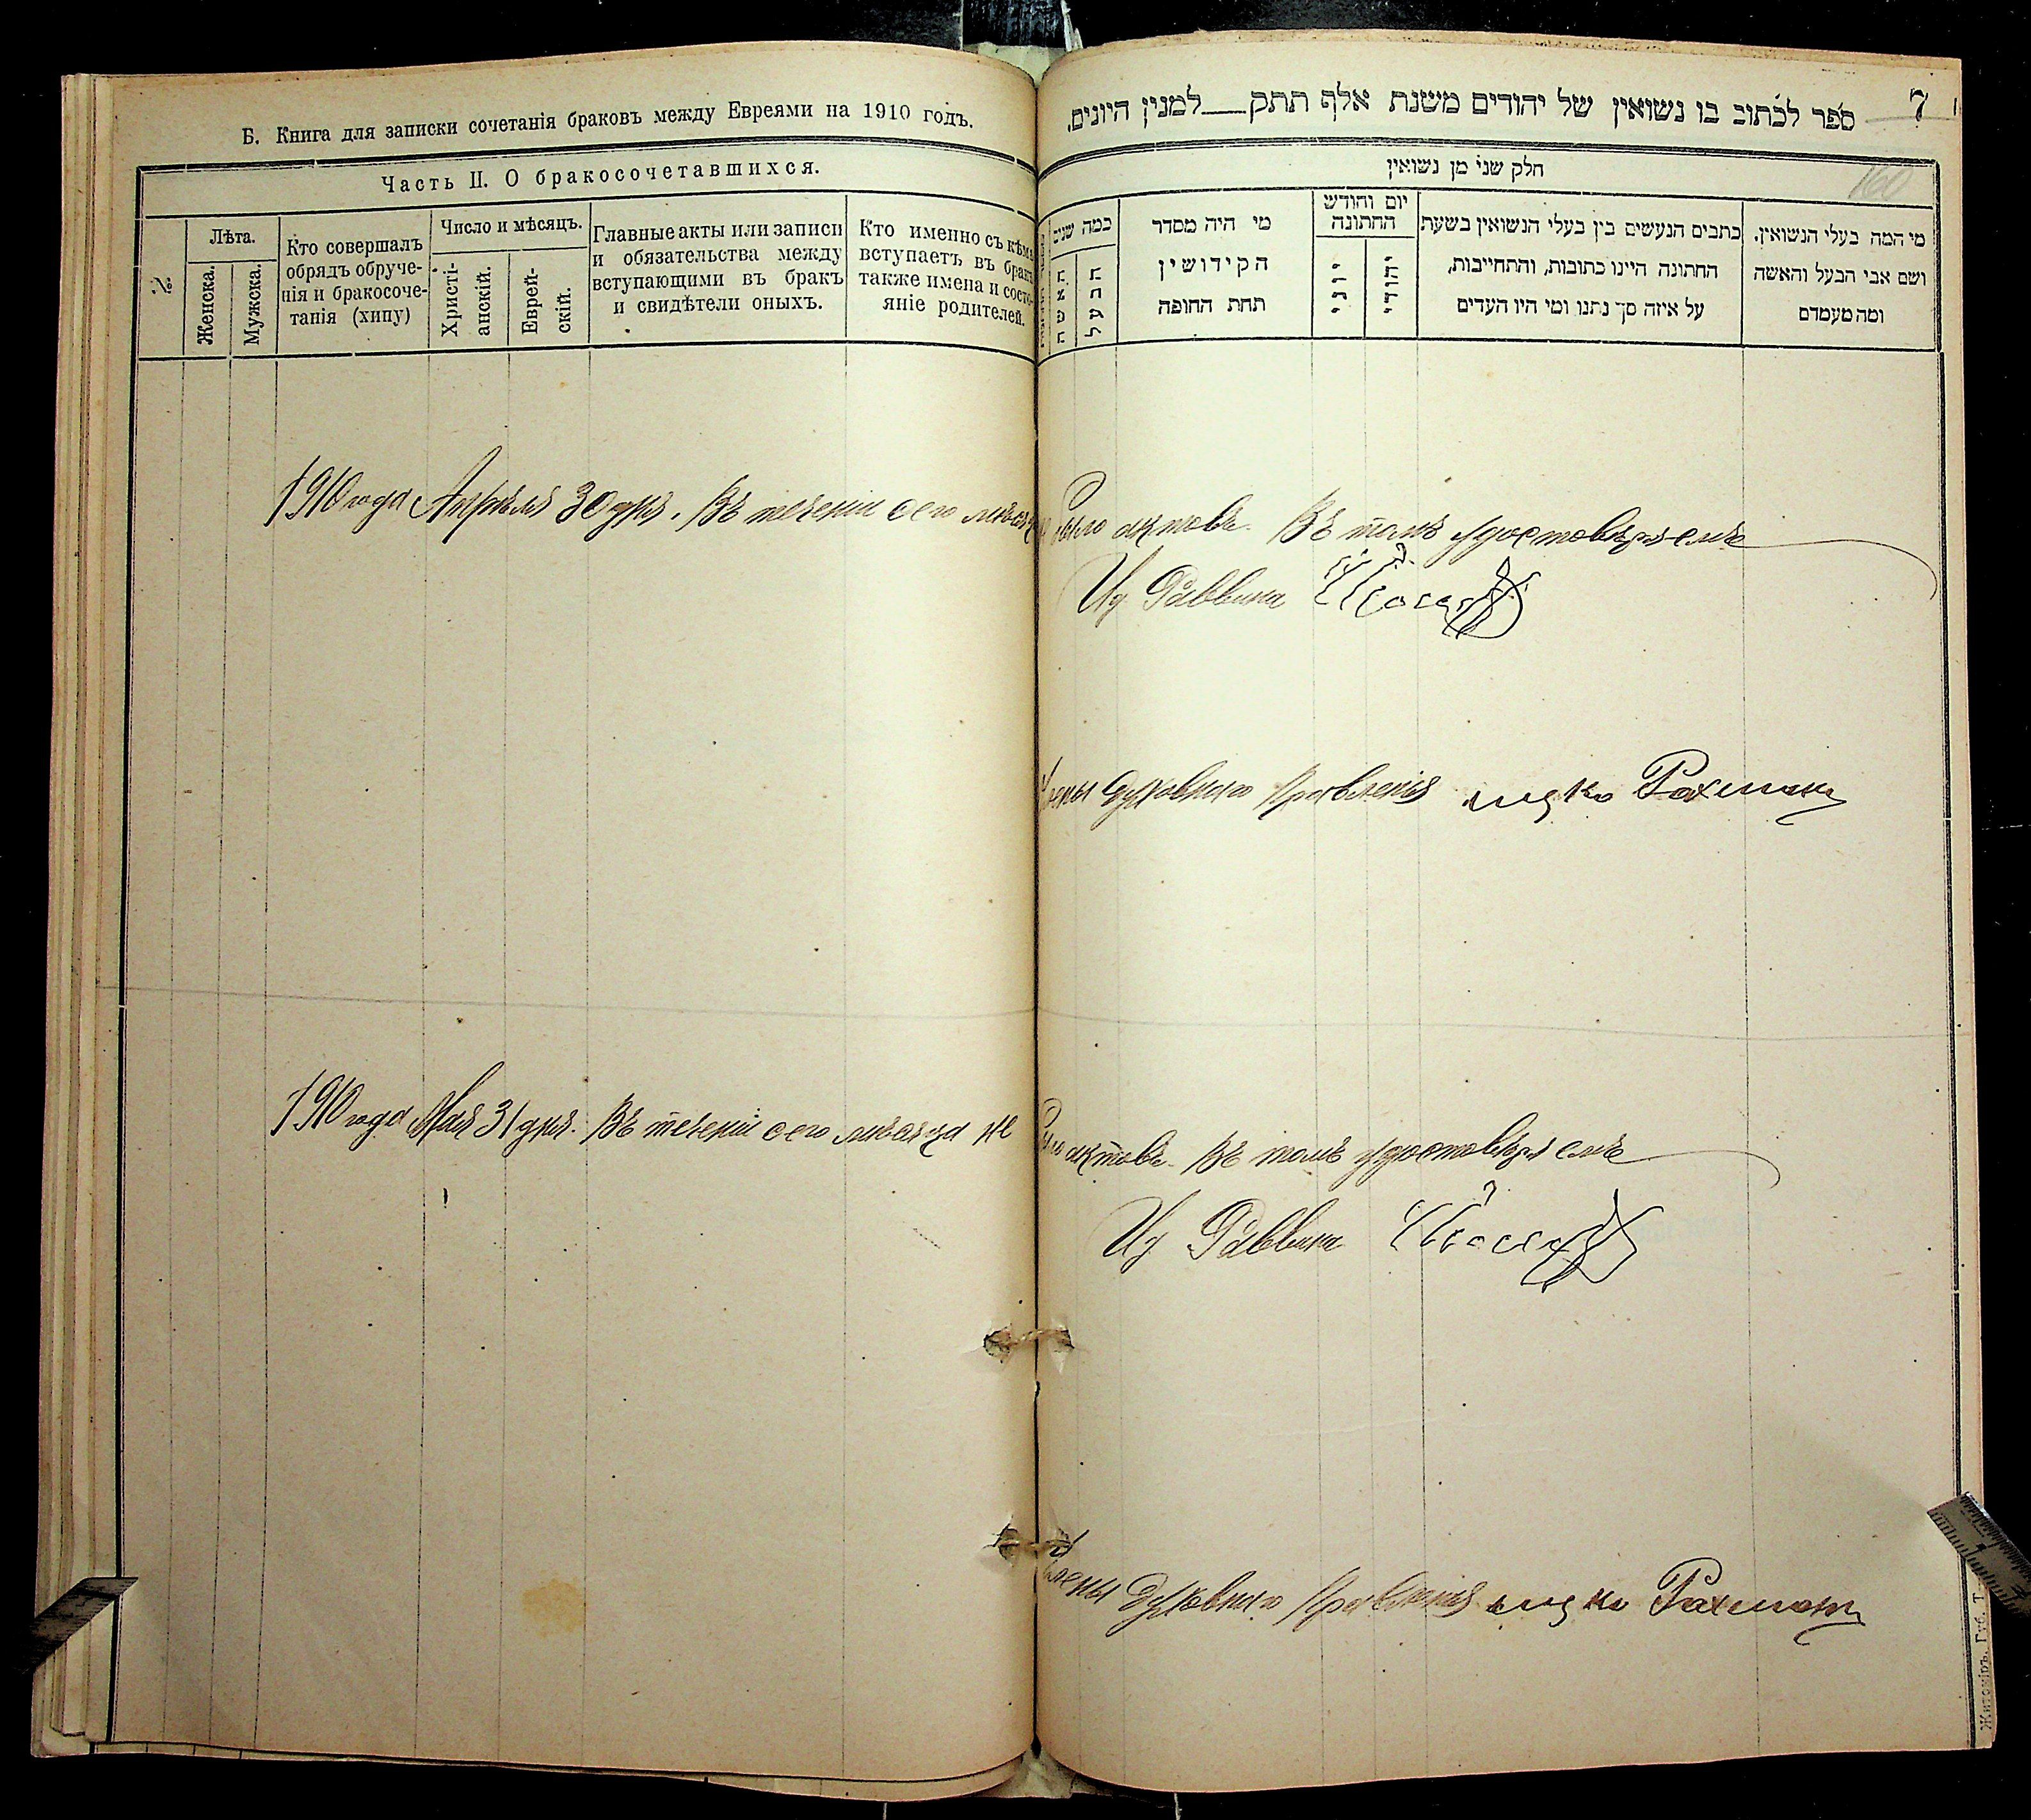 Б. Книга для записки сочетанія браковъ между Евреями на 1910 годъ.
Часть II. О бракосочетавшихся.
№
Лѣта.
Женска.
Мужска.
Кто совершалъ
обрядъ обруче-
нія и бракосоче-
танія (хипу)
Число и мѣсяцъ.
Христі-
анскій.
Еврей-
скій.
Главные акты или записи
и обязательства между
вступающими въ бракъ
и свидѣтели оныхъ.
Кто именно съ кѣмъ
вступаетъ въ бракъ
также имена и состо-
яніе родителей.
1910 года Апрѣля 30 дня. Въ теченіи сего мѣсяца
1910 года Мая 31 дня. Въ теченіи сего мѣсяца не
ספר לכתוב בו נשואין של יהודים משנת אלף תתק___למנין היונים.
7
חלק שני מן נשואין
160
מי המה בעלי הנשואין.
ושם אבי הבעל והאשה
ומה מעמדם
כתבים הנעשים בין בעלי הנשואין בשעת
החתונה היינו כתובות, והתחייבות,
על איזה סך נתנו ומי היו העדים
יום וחודש
החתונה
יהודי
יוני
מי היה מסדר
הקידושין
תחת החופה
כמה שנים
הבעל
האשה
было актовъ. Въ томъ удостовѣряемъ
Ид Раввина
Члены Духовнаго Правленія Рахман
было актовъ. Въ томъ удостовѣряемъ
Ид Раввина
Члены Духовнаго Правленія Рахман
Житоміръ, Губ. Т.